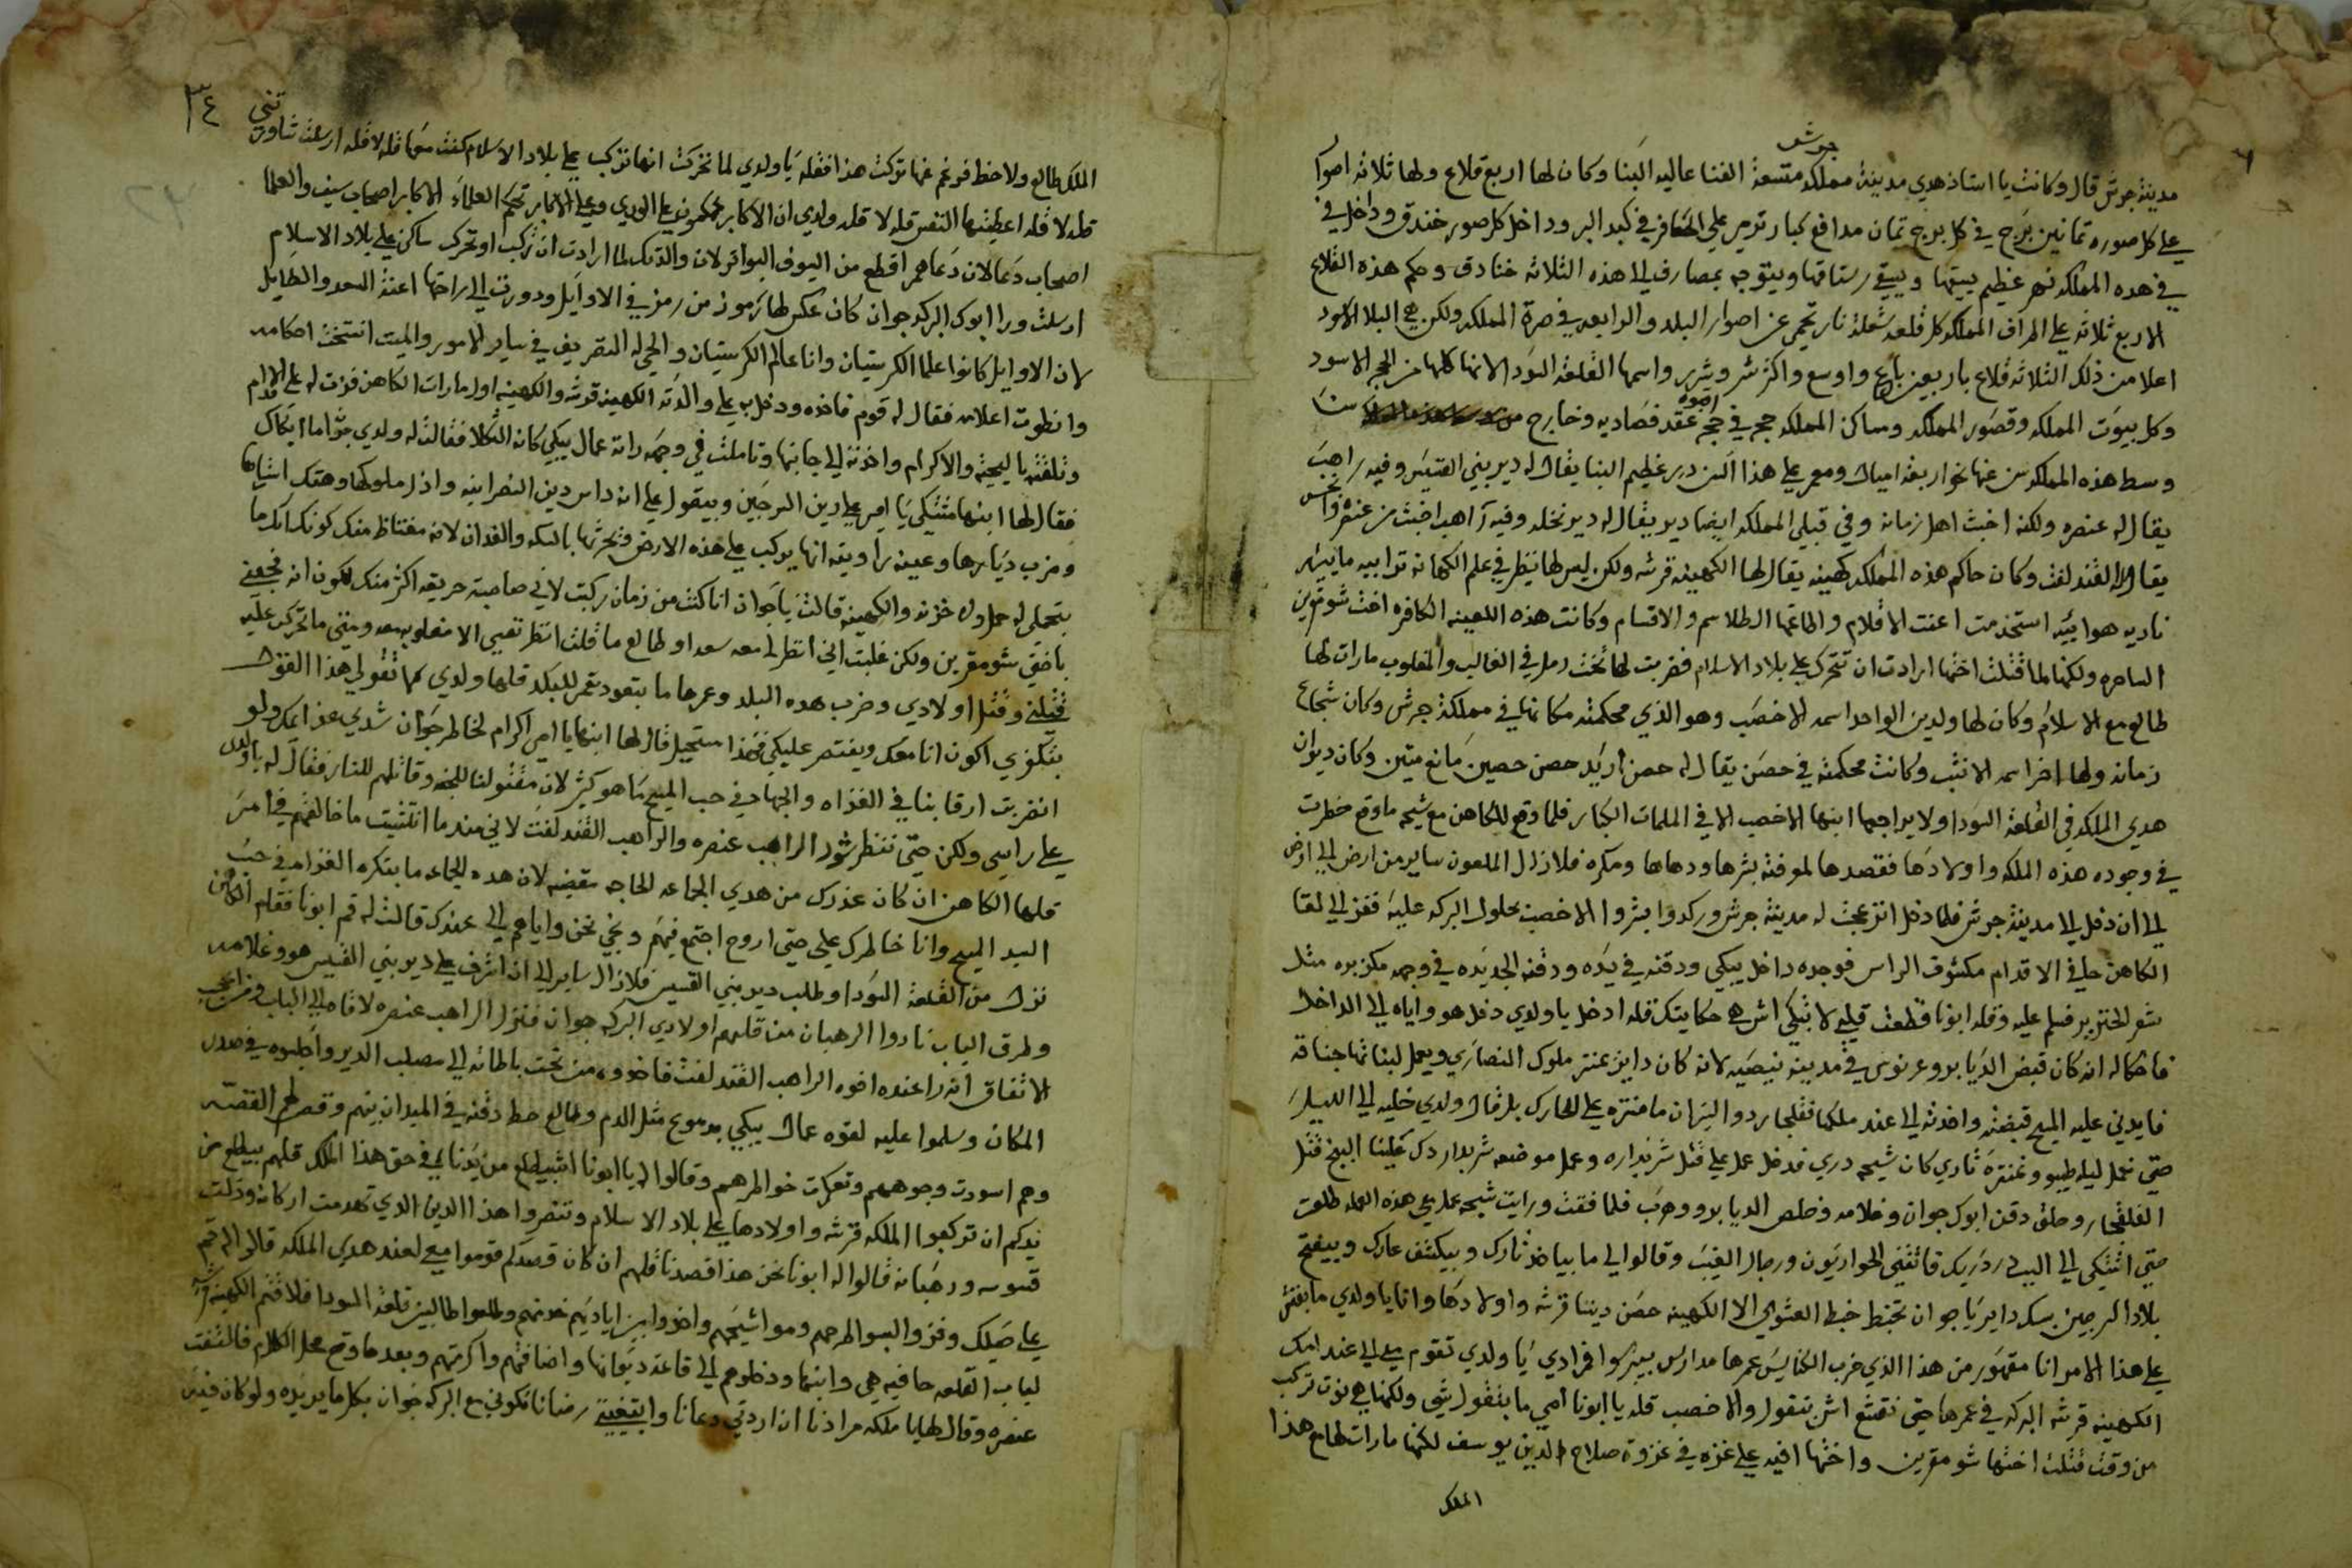 جرش
مدينة جرش قال وكانت يا استاذ هدي مدينة مملكه متسعة الفنا عاليه البنا وكان لها اربع قلاع ولها ثلاثه اصوار
علي كل صوره تمانين برج في كل برج تمان مدافع كبار ترمي علي الكافر في كبد البر وداخل كل صور خندق وداخل في
في هده المملكه نهر عظيم بيسقيها وبيسقي رستاقها وبيتوجه بمصارف الي هذه الثلاثه خنادق وحكم هذه القلاع
الاربع ثلاثه علي اطراف المملكه كل قلعه شعلة نار تحمي عن اصوار البلد والرابعه في صرة المملكه ولكن هي البلا الاسود
اعلا من ذلك الثلاثه قلاع باربعين باع واوسع واكثر شر وشرر واسمها القلعة السودا لانها كلها من الحجر الاسود
وكل بيوت المملكه وقصور المملكه ومساكن المملكه حجر في حجر عقد فصاديه وخارج من
وسط هذه المملكه عنها نحو اربعة اميال ومعمر علي هذا دير عظيم البنا يقال له دير بيني القسيس وفيه راهب
يقال له عنصره ولكنه اخبث اهل زمانه وفي قبلي المملكه ايضا دير يقال له دير نخله وفيه راهب اخبث من عنصره
يقال له القندلفت وكان حاكم هذه المملكه كهينه يقال لها الكهينه قرشه ولكن ليس لها نظير في علم الكهانه ترابيه مائيه
ناريه هوائيه استخدمت اعتت الاقلام واطاعتها الطلاسم والاقسام وكانت هذه اللعينه الكافره اخت شومقرين
الساحره ولكنها لما قتلت اختها ارادت ان تتحرك علي بلاد الاسلام فضربت لها تخت رمل في الغالب والمغلوب مارات لها
طالع مع الاسلام وكان لها ولدين الواحد اسمه الاخصب وهو الذي محكمته مكانها في مملكة جرش وكان شجاع
زمانه ولها اخر اسمه الاشهب وكانت محكمته في حصن يقال له حصن اربد حصن حصين مانع متين وكان ديوان
هدي الملكه في القلعة السودا ولا يراجعها ابنها الاخصب الا في الملمات الكبار فلما وقع للكاهن مع شيحه ما وقع خطرت
في وجوده هذه الملكه واولادها فقصدها لمعرفته بشرها ودهاها ومكره فلا زال الملعون ساير من ارض الي ارض
الي ان دخل الي مدينة جرش فلما دخل انزعجت له مدينة جرش وركدوا بشروا الاخصب بحلول البركه عليه ففز الي لقا
الكاهن حافي الاقدام مكشوف الراس فوجده داخل يبكي ودقنه في يده ودقنه الجديده في وجهه مكزبره مثل
شعر الخنزير فسلم عليه وقله ابونا قطعت قلبي لا تبكي اش هي حكايتك قله ادخل يا ولدي دخل هو واياه الي الداخل
فاحكاله انه كان قبض الديابرو وعرنوس في مدينة بيصيه لانه كان داير عنتر ملوك النصاري ويعمل لبناتها جناقه
فايدني عليه المسيح قبضته واخدته الي عند ملكها
حتي نعمل ليله طيبو وعنتره تاري كان شيحه دري فدخل عمل علي قتل شربداره وعمل موضعه شربدار دك علينا البنج قتل
وحلق دقن ابوك جوان وغلامه وخلص الديابرو وهرب فلما فقت ورايت شيحه عمل معي هذه العمله طلعت
حتي اشتكي الي السيد فالتقتني الحواريون ورجال الغيب وقالوا لي ما بياخد تارك وبيكشف عارك وبيفتح
بلاد السرجين بسك داير يا جوان تخبط خبط العشوا الي الا الكهينه حصن ديننا قرشه واولادها وانا يا ولدي ما بفتش
علي هذا الامر انا مقهور من هذا الذي خرب الكنايس عمرها مدارس بيبزروا فرادي يا ولدي تقوم معي الي عند امك
الكهينه قرشه البركه في عمرها حتي نقشع اش بتقول والاخصب قله يا ابونا امي ما بتقول شي ولكنها هي نوت تركب
من وقت قتلت اختها شومقرين واختها اخيه علي غزه في غزوة صلاح الدين يوسف لكنها مارات لها مع هذا
الملك
٣٤
الملك طالع ولا حظ فرغم عنها تركت هذا فقله يا ولدي لما تحركت انها تركب علي بلاد الاسلام كنت معها قله لا قله ارسلت شاورتني
قله لا قله اعطيتيها النفس قله لا قله ولدي ان الاكابر بيحكمون علي الوري وعلي الاكابر تحكم العلماء الاكابر اصحاب سيف والعلما
اصحاب دعا لان دعاهم اقطع من السيوف البواتر لان والدتك لما ارادت ان تركب او تحرك ساكن علي بلاد الاسلام
ارسلت ورا ابوك البركه جوان كان عكس لها رموز من رمز في الاوايل ودورت الي راحتها اعنة السعد والطايل
لان الاوايل كانوا علما الكرستيان وانا عالم الكرستيان والحي له التصريف في ساير الامور والميت انتسخت احكامه
وانطوت اعلامه فقال له قوم فاخده ودخل به علي والدته الكهينه قرشه والكهينه اول ما رات الكاهن فزت له علي الاقدام
وتلقته بالتحيه والاكرام واخدته الي جانبها وتاملت في وجهه راته عمال يبكي كانه التكلا فقالت له ولدي جوان ما ابكاك
فقال لها ابنها مشتكي يا امي علي دين السرجين وبيقول علي انه داس دين النصرانيه واذل ملوكها وهتك استارها
وخرب ديارها وعينه راويته انها يركب علي هذه الارض وبحرتها بالسكه والفدان لانه مغتاظ منك كونك انك ما
بتحملي له حمل ولا خزنه والكهينه قالت يا جوان انا كنت من زمان ركبت لاني صاحبة حريقه اكثر منك لكون انه فجعني
باختي شومقرين ولكن غلبت اني انظر لي معه سعد او طالع ما قلت انظر نفسي الا مغلوب معه وبيني ما تحرك عليه
قتلني وقتل اولادي وخرب هده البلد وعمرها ما بتعود تعمر للبلد قلها ولدي كما تقولي هذا القول
بتكفري اكون انا معك وينتصر عليكي فهذا مستحيل قال لها ابنها يا امي اكرام لخاطر جوان شدي عزايمك ولو
انضربت ارقابنا في الغزاه والجهاد في حب المسيح ما هو كثير لان مقتولنا للجنه وقاتلهم للنار فقال له يا ولدي
علي راسي ولكن حتي ننظر شور الراهب عنصره والراهب القندلفت لاني منه ما انتشيت ما خالفتهم في امر
قلها الكاهن ان كان عذرك من هدي الجماعه الحاجه مقضيه لان هده الجماعه ما بتكره الغزاه في حب
السيد المسيح وانا خاطرك علي حتي اروح اجتمع فيهم ونجي نحن واياهم الي عندك قالت له قم ابونا فقام الكاهن
نزل من القلعة السودا وطلب دير بيني القسيس فلا زال ساير الي ان اشرف علي دير بيني القسيس هو وغلامه
وطرق الباب نادوا الرهبان من قلهم اولادي البركه جوان فنزل الراهب عنصره لاقاه الي الباب ومن عجيب
الاتفاق انه را عنده اخوه الراهب القندلفت فاخدوه من تحت باطاته الي مصلب الدير واجلسوه في صدر
المكان وسلموا عليه لقوه عمال يبكي بدموع مثل الدم وطالع حط دقنه في الميدان بينهم وقص لهم القصه
وهم اسودت وجوههم وتعكرت خواطرهم وقالوا له يا ابونا اش بيطلع من يدنا في حق هذا الملك قلهم بيطلع من
يدكم ان تركبوا الملكه قرشه واولادها علي بلاد الاسلام وتنصروا هذا الدين الدي تهدمت اركانه ودلت
قسوسه ورهبانه قالوا له ابونا نحن هذا قصدنا قلهم ان كان قصدكم قوموا معي لعند هدي الملكه قالوا له قم
علي حيلك وفزوا لبسوا طرحهم ومواشيحهم واخدوا بين اياديهم خدمهم وطلعوا طالبين قلعة السودا فلاقتهم الكهينه قرشه
لباب القلعه حافيه هي وابنها ودخلوهم الي قاعة ديوانها واضافتهم واكرمتهم وبعدها وقع محل الكلام فالتفت
عنصره وقال لها يا ملكه مرادنا ان اردتي دعانا وابتغيتي رضانا تكوني مع البركه جوان بكل ما يريده ولو كان فيه